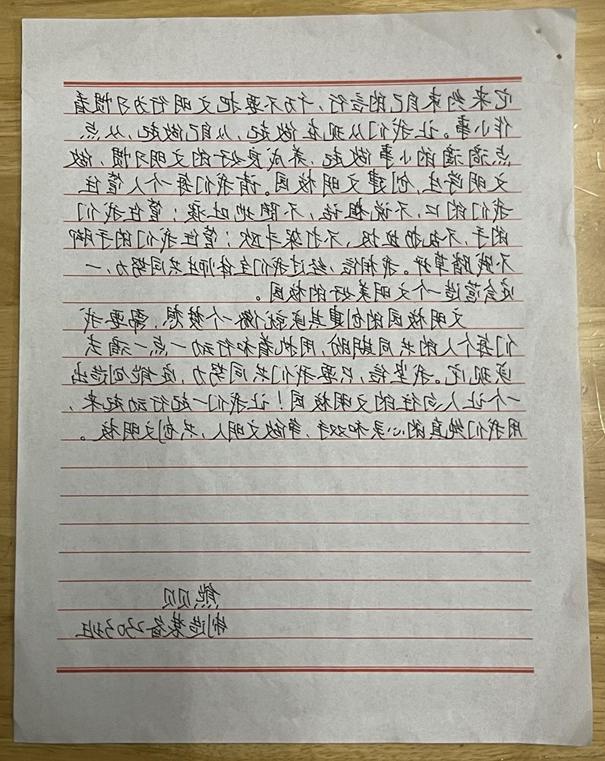 它来约束自己的言行，千万不要把文明行为习惯看
作小事。让我们从现在做起，从自己做起，从点
点滴滴的小事做起，养成良好的文明习惯，做
文明学生，创建文明校园。请我们每个人管住
我们的口，不说粗话，不随地吐痰；管住我们
的手，不乱扔垃圾，不打架斗殴；管住我们的脚
不践踏草坪。我相信，经过我们全体师生共同努力，一
定会营造一个文明美好的校园。
文明校园的创建其实就像一个梦想，需要我
们每个人的共同期盼，用执着和行动一点一滴去
实现它。我坚信，只要我们共同努力，定能创造出
一个让人向往的文明校园！让我们一起行动起来，
用我们纯真的心灵和双手，争做文明人，共创文明校。
熊贝贝
制造装备2303班